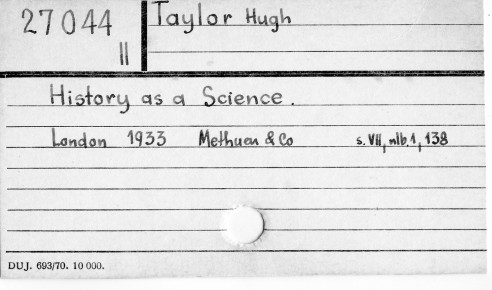 27044
II
Taylor Hugh
History as a Science.
London 1933 Methuen & Co s. VII, nlb. 1, 138
DUJ. 693/70. 10 000.